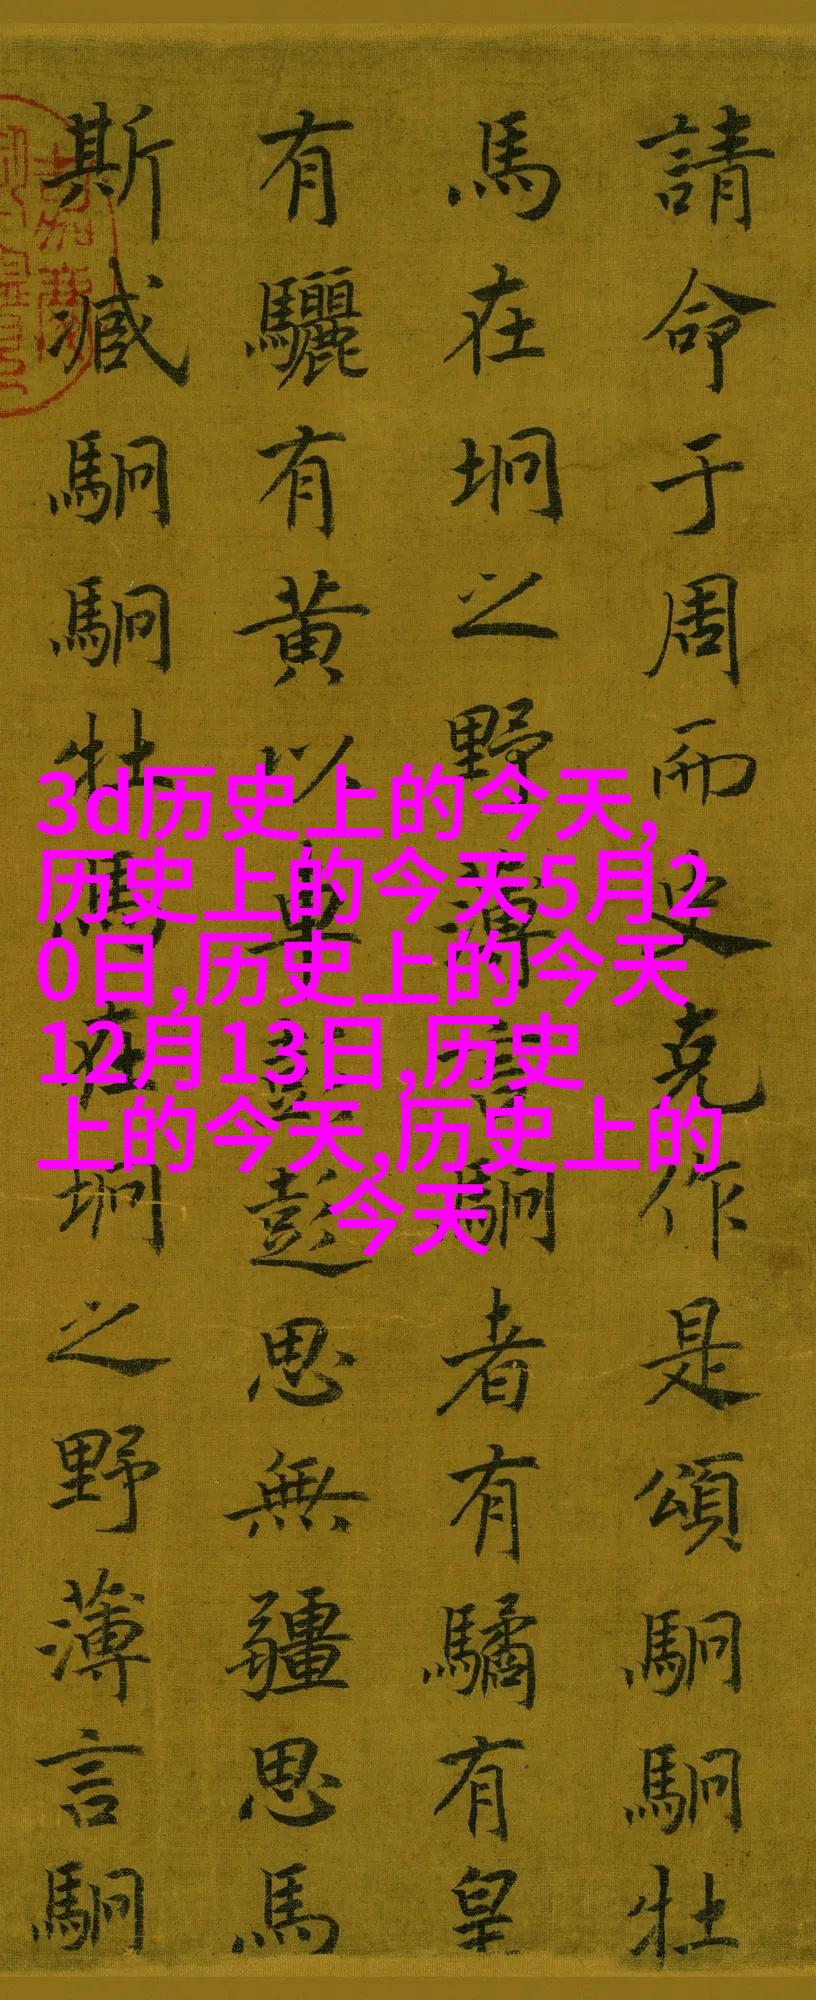 請命于周而史克作是頌駉駉牡
馬在坰之野薄言駉者有驈有皇
有驪有黄以車彭彭思無疆思馬
斯臧駉駉牡馬在坰之野薄言駉
3d历史上的今天,
历史上的今天5月2
0日,历史上的今天
12月13日,历史
上的今天,历史上的
今天